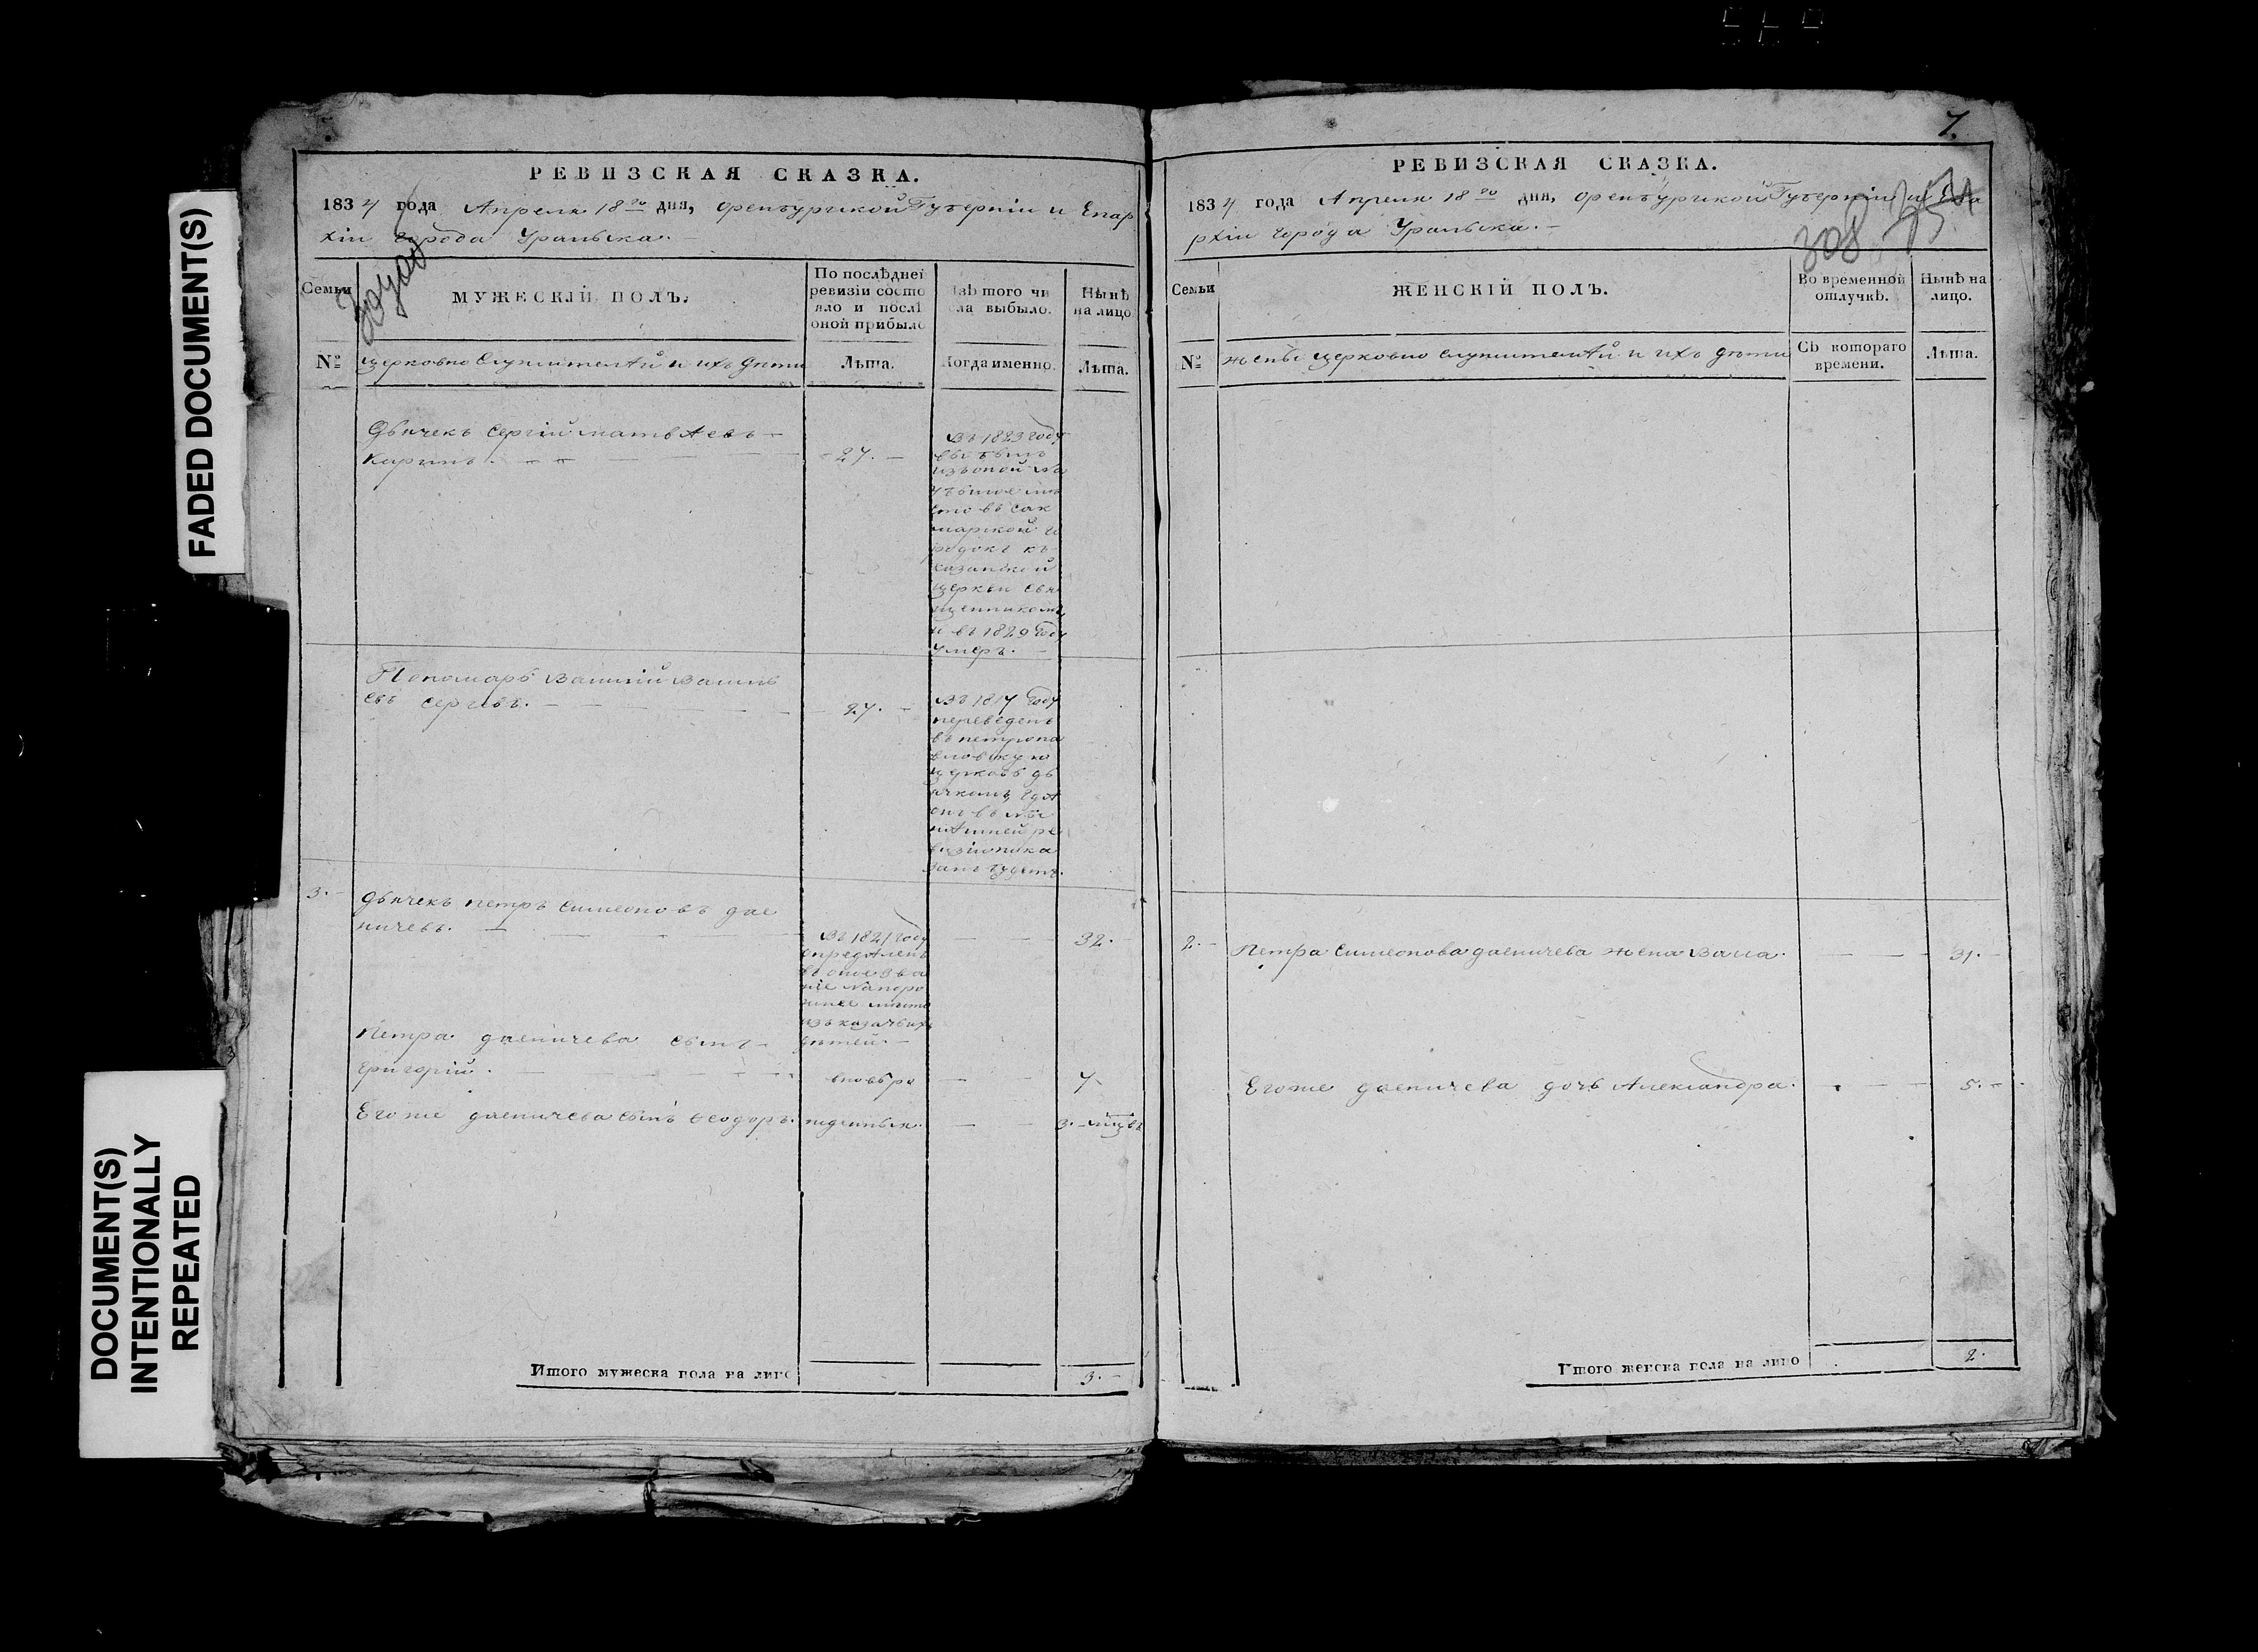 FADED DOCUMENT(S)
DOCUMENT(S)
INTENTIONALLY
REPEATED
РЕВИЗСКАЯ СКАЗКА.
1834 года Апреля 18го дня, оренбургской Губернiи и Епар
хiи города Уральска.
Семьи
МУЖЕСКIЙ ПОЛЪ.
По послѣдней
ревизiи состо
яло и послѣ
оной прибыло
Изъ того чи
сла выбыло.
Нынѣ
на лицо
№
церковно служителей и ихъ дѣти
Лѣта.
Когда именно.
Лѣта.
Дьячекъ Сергiй матвѣевъ
Каринъ.
27.
Въ 1823 году
выбылъ
изъ оной на
мѣ
сто въ сак
марской го
родокъ къ
казанской
церкви свя
щенникомъ
и въ 1829 году
умеръ.
Пономарь Василiй Василь
евъ сергѣвъ.
27.
Въ 1817 году
переведенъ
въ петропа
вловскую
церковь дь
ячкомъ, гдѣ
онъ въ ны
нѣшней ре
визiи пока
занъ будетъ.
3.
дьячекъ петръ симеоновъ дае
ничевъ.
Въ 1821 году
опредѣленъ
въ оное зва
нiе на поро
жнее мѣсто
изъ казачьихъ
дѣтей.
32.
Петра даеничева сынъ
григорiй.
вновь ро
7.
Его же даеничева сынъ Ѳеодоръ.
жденныя.
3. мѣсцъ
Итого мужеска пола на лицо
3.
7.
РЕВИЗСКАЯ СКАЗКА.
1834 года Апреля 18го дня, оренбургской Губернiи и Епа
рхiи города Уральска.
308
Семьи
ЖЕНСКIЙ ПОЛЪ.
Во временной
отлучкѣ.
Нынѣ на
лицо.
№
жены церковно служителей и ихъ дѣти
Съ котораго
времени.
Лѣта.
2.
Петра симеонова даеничева жена Васса.
31.
Его же даеничева дочь Александра.
5.
Итого женска пола на лицо
2.